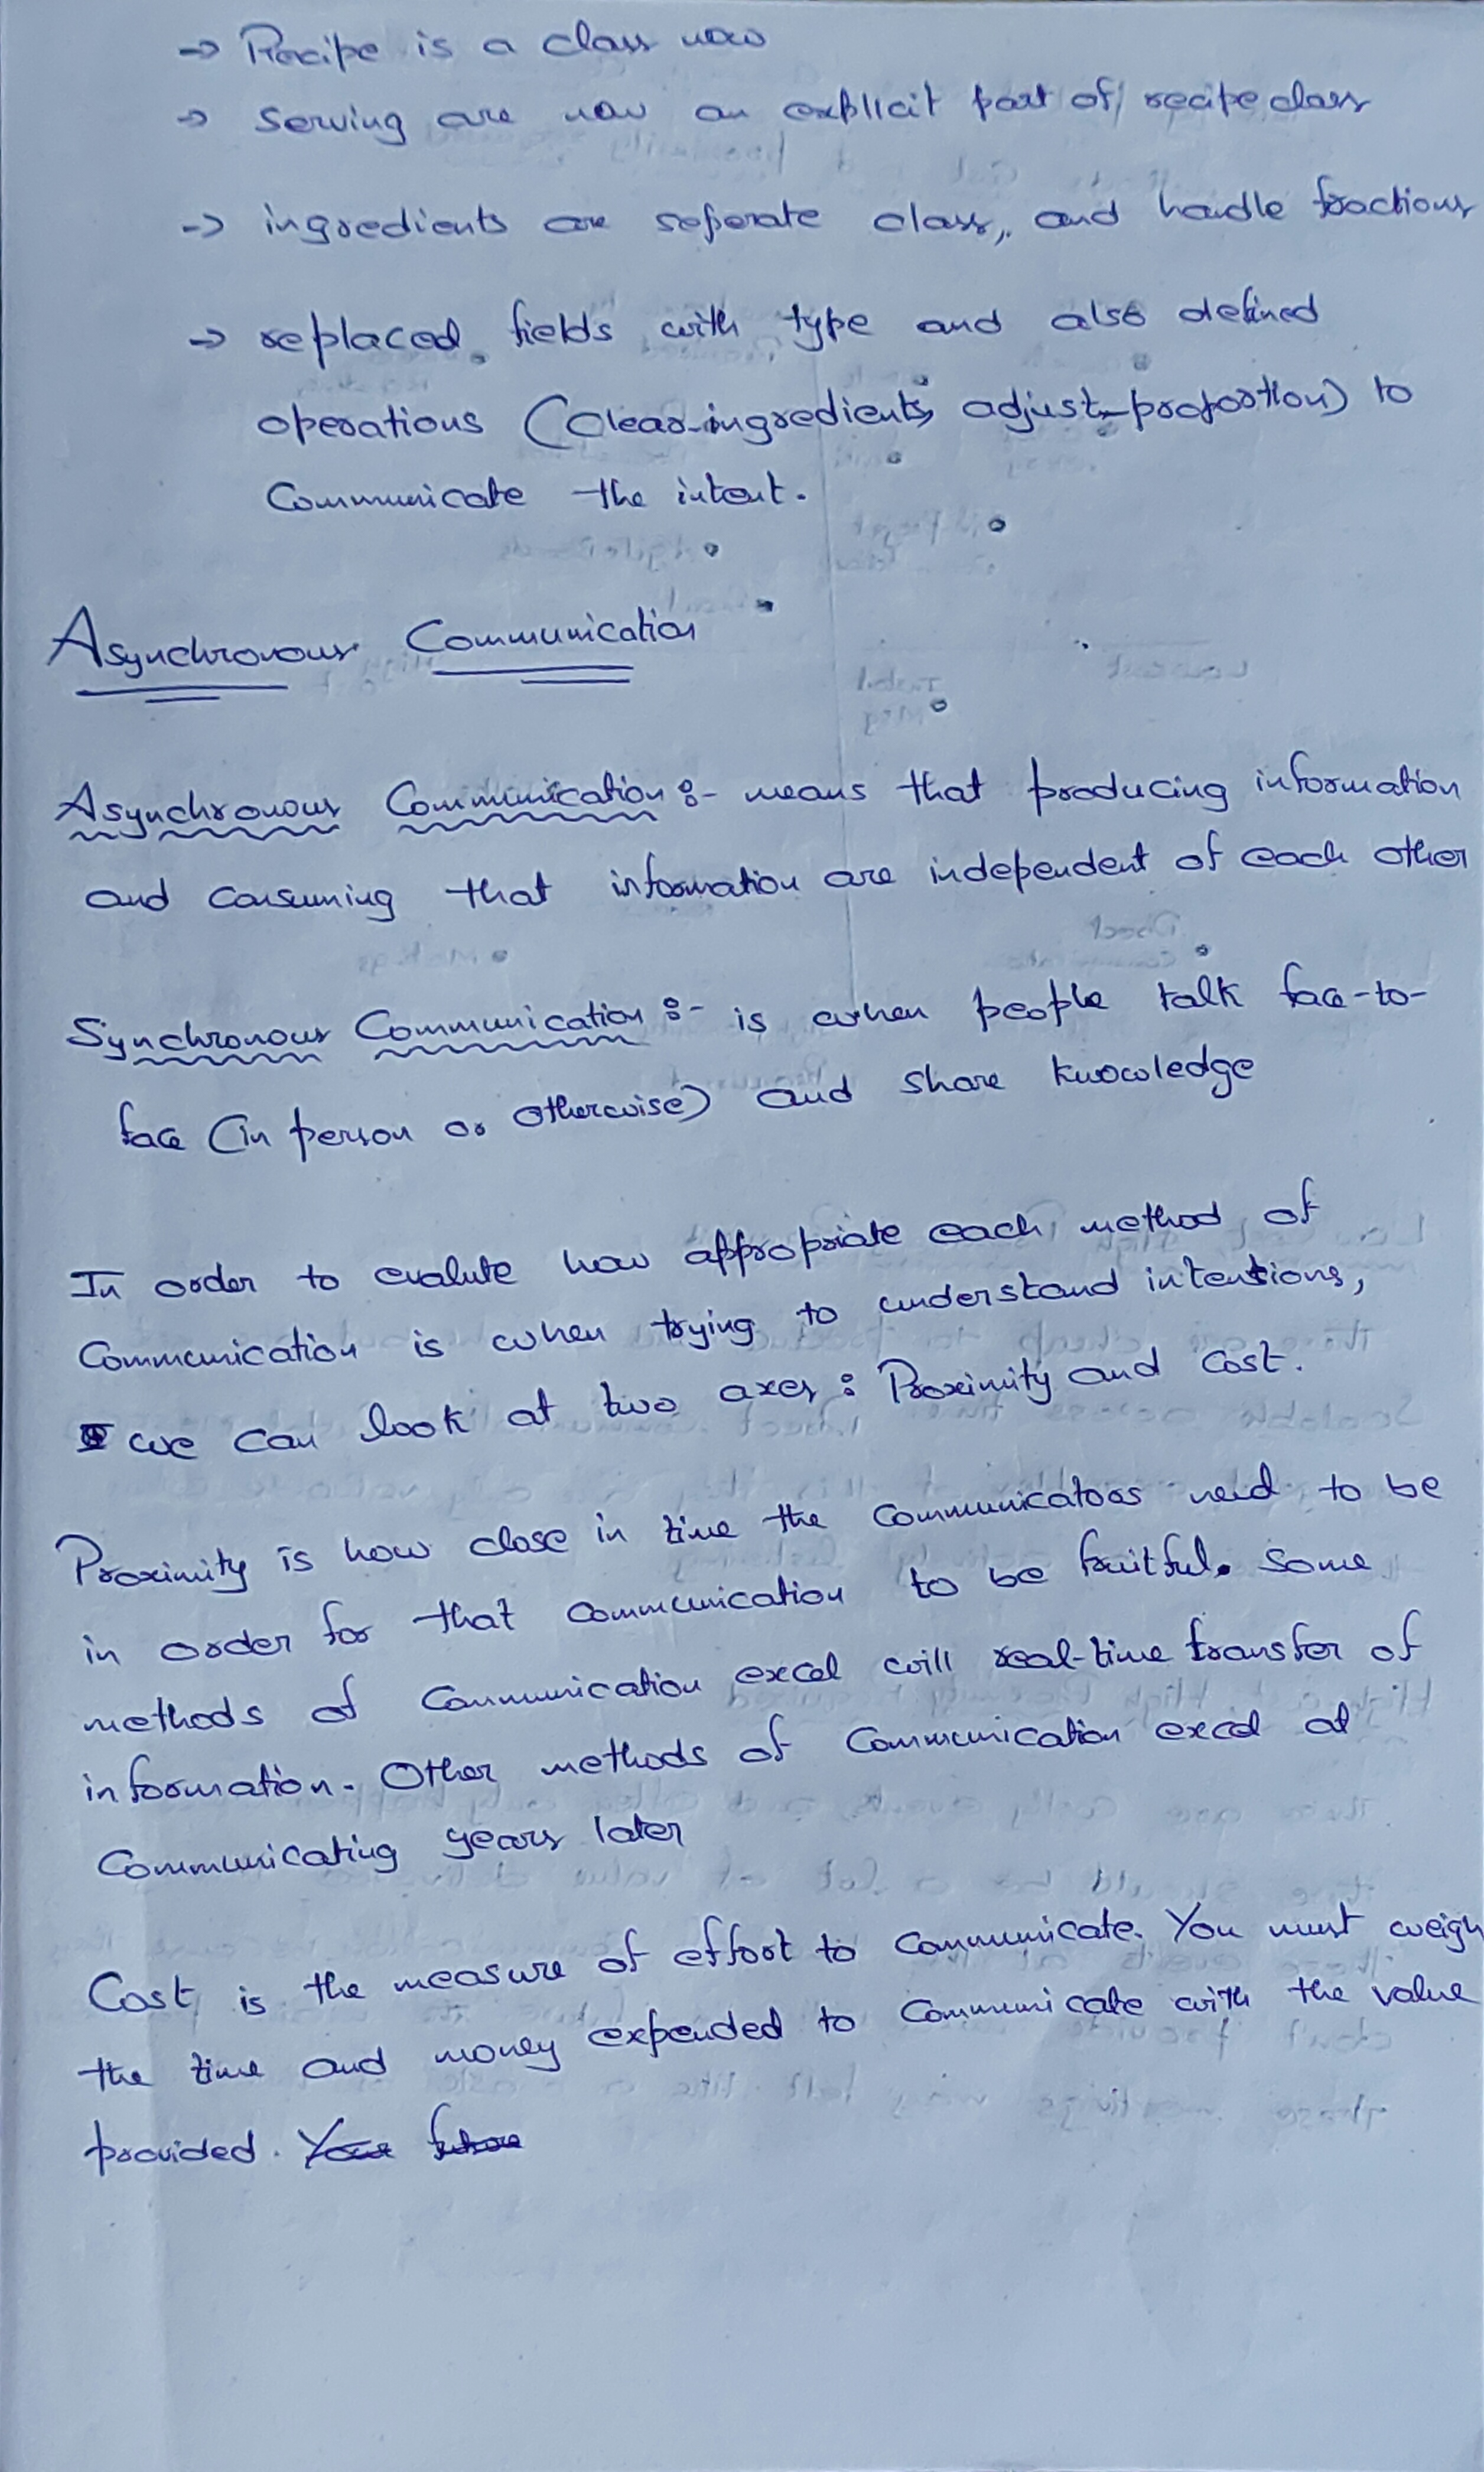 → Recipe is a class now
→ Serving are now an explicit part of recipe class
→ ingredients are seperate class, and handle fractions
→ replaced fields with type and also defined
operations (Clear-ingredients, adjust-proportion) to
Communicate the intent.
Asynchronous Communication
Asynchronous Communication :- means that producing information
and consuming that information are independent of each other
Synchronous Communication :- is when people talk face-to-
face (in person or otherwise) and share knowledge
In order to evalute how appropriate each method of
Communication is when trying to understand intentions,
we can look at two axes : Proximity and Cost.
Proximity is how close in time the Communicators need to be
in order for that communication to be fruitful. Some
methods of Communication excel will real-time transfer of
information. Other methods of Communication excel at
Communicating years later
Cost is the measure of effort to Communicate. You must weigh
the time and money expended to Communicate with the value
provided.